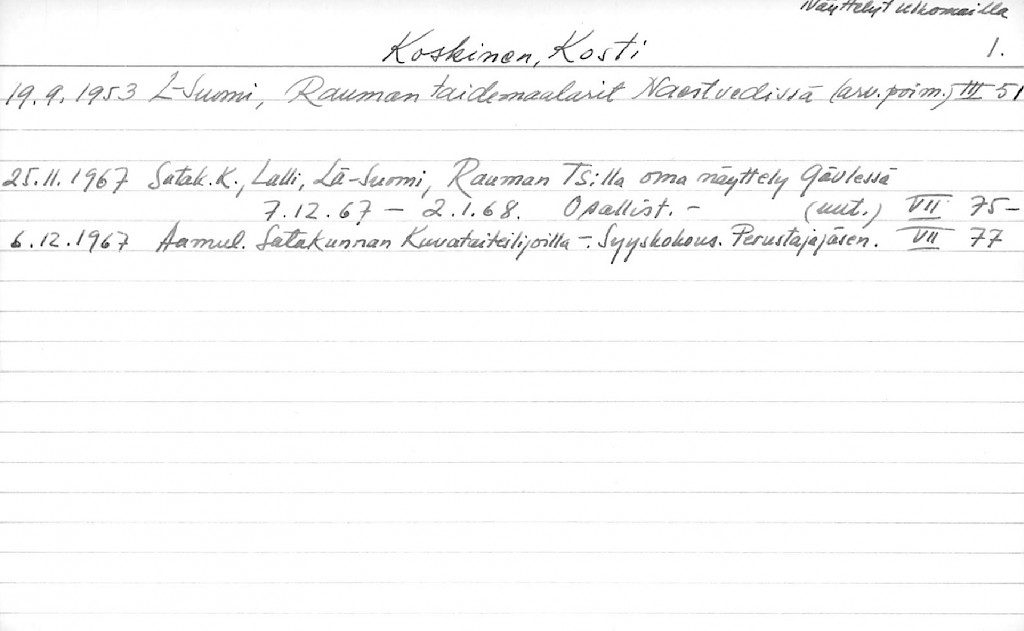 Näyttelyt ulkomailla
Koskinen, Kosti 1.
19.9.1953 L-Suomi, Rauman taidemaalarit Naestvedissä (arv.poim.) III 51
25.11.1967 Satak.K., Lalli, Lä-Suomi, Rauman TS:lla oma näyttely Gävlessä
7.12.67 – 2.1.68. Osallist. – (uut.) VII 75–
6.12.1967 Aamul. Satakunnan Kuvataiteilijoilla –. Syyskokous. Perustajajäsen. VII 77